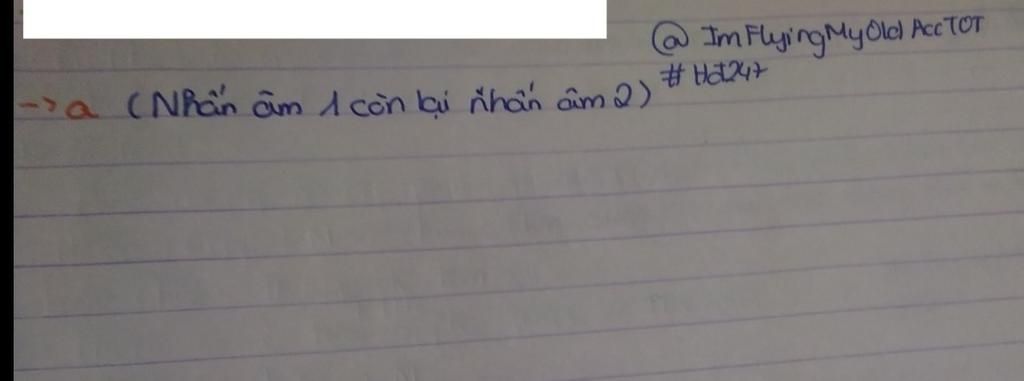 @ ImFlyingMyOldAccTOT
# Hot24+
→ a (Nhấn âm 1 còn lại nhấn âm 2)